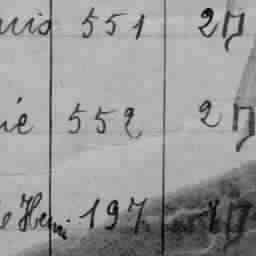 uis 551 2
ié 552 2
e Henri 197